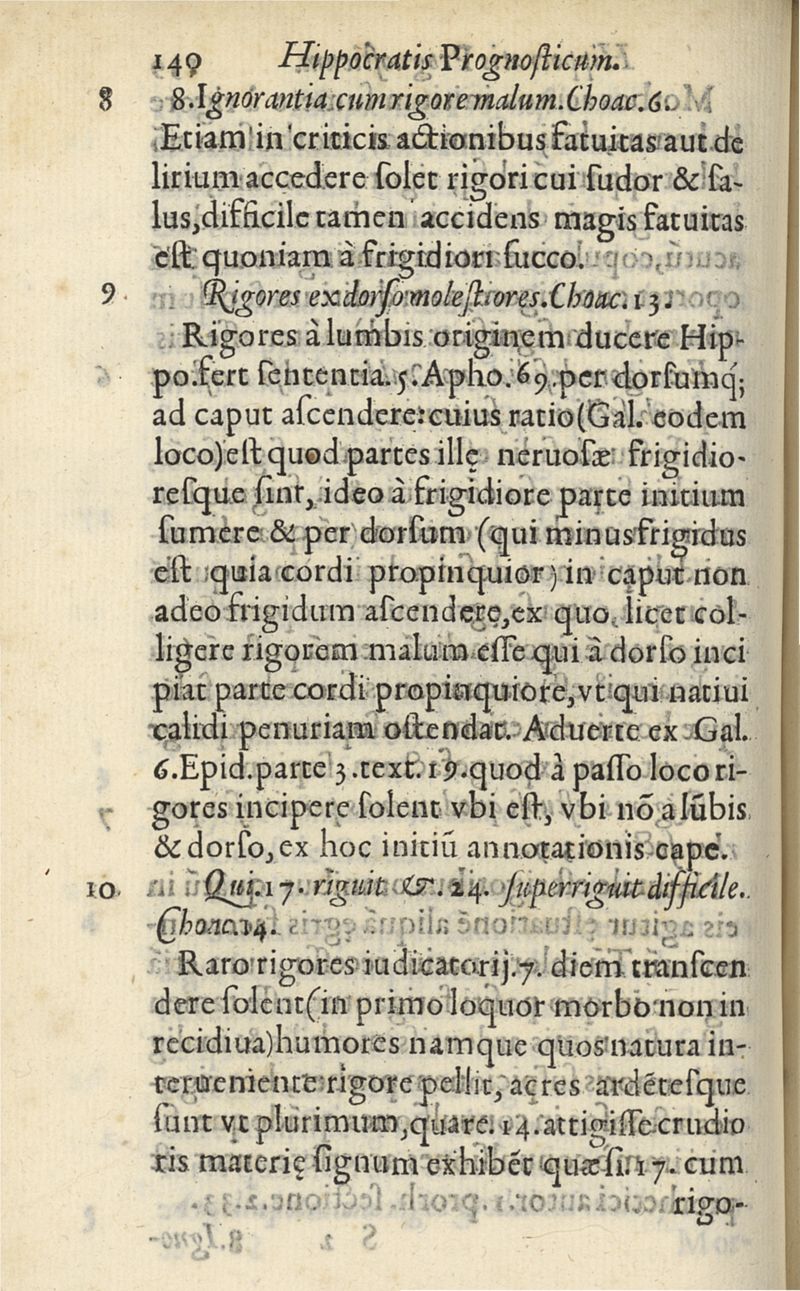 149 Hippocratis Prognosticum.
8 8.Ignorantia cum rigore malum.Choac.6.
Etiam in criticis actionibus fatuitas aut de
lirium accedere solet rigori cui sudor & sa-
lus,difficile tamen accidens magis fatuitas
est quoniam à frigidiori succo.
9 Rigores ex dorso molestiores.Choac.13.
Rigores à lumbis originem ducere Hip-
po.fert sententia.5.Apho.69.per dorsumq́;
ad caput ascendere:cuius ratio(Gal. eodem
loco)est quod partes illę neruosæ frigidio-
resque sint, ideo à frigidiore parte initium
sumere & per dorsum (qui minus frigidus
est quia cordi propinquior) in caput non
adeo frigidum ascendere,ex quo licet col-
ligere rigorem malum esse qui à dorso inci
piat parte cordi propinquiore,vt qui natiui
calidi penuriam ostendat. Aduerte ex Gal.
6.Epid.parte 3.text.19.quod à passo loco ri-
gores incipere solent vbi est, vbi nõ a lũbis
& dorso,ex hoc initiũ annotationis cape.
10 Qui.17. riguit &. 24. superriguit difficile.
Choac.14.
Raro rigores iudicatorij.7. diem transcen
dere solent(in primo loquor morbo non in
recidiua)humores namque quos natura in-
terueniente rigore pellit, acres ardẽtesque
sunt vt plurimum,quare.14.attigisse crudio
ris materię signum exhibẽt quæ si.17. cum
rigo-